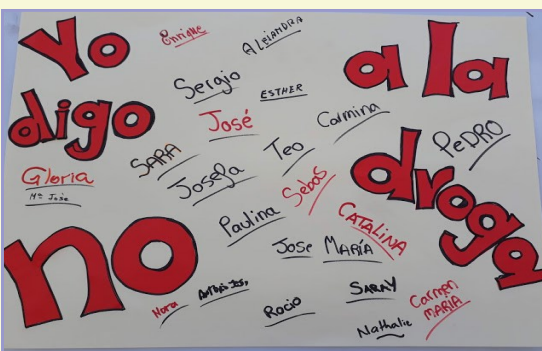 Yo
digo
no
a la
droga
Enrique
ALEJANDRA
Sergio
ESTHER
José
Carmina
PEDRO
SARA
Teo
Gloria
Mª José
Josefa
Sebas
Paulina
CATALINA
Jose MARÍA
SARAY
Carmen
MARÍA
Nora
Rocio
Nathalie